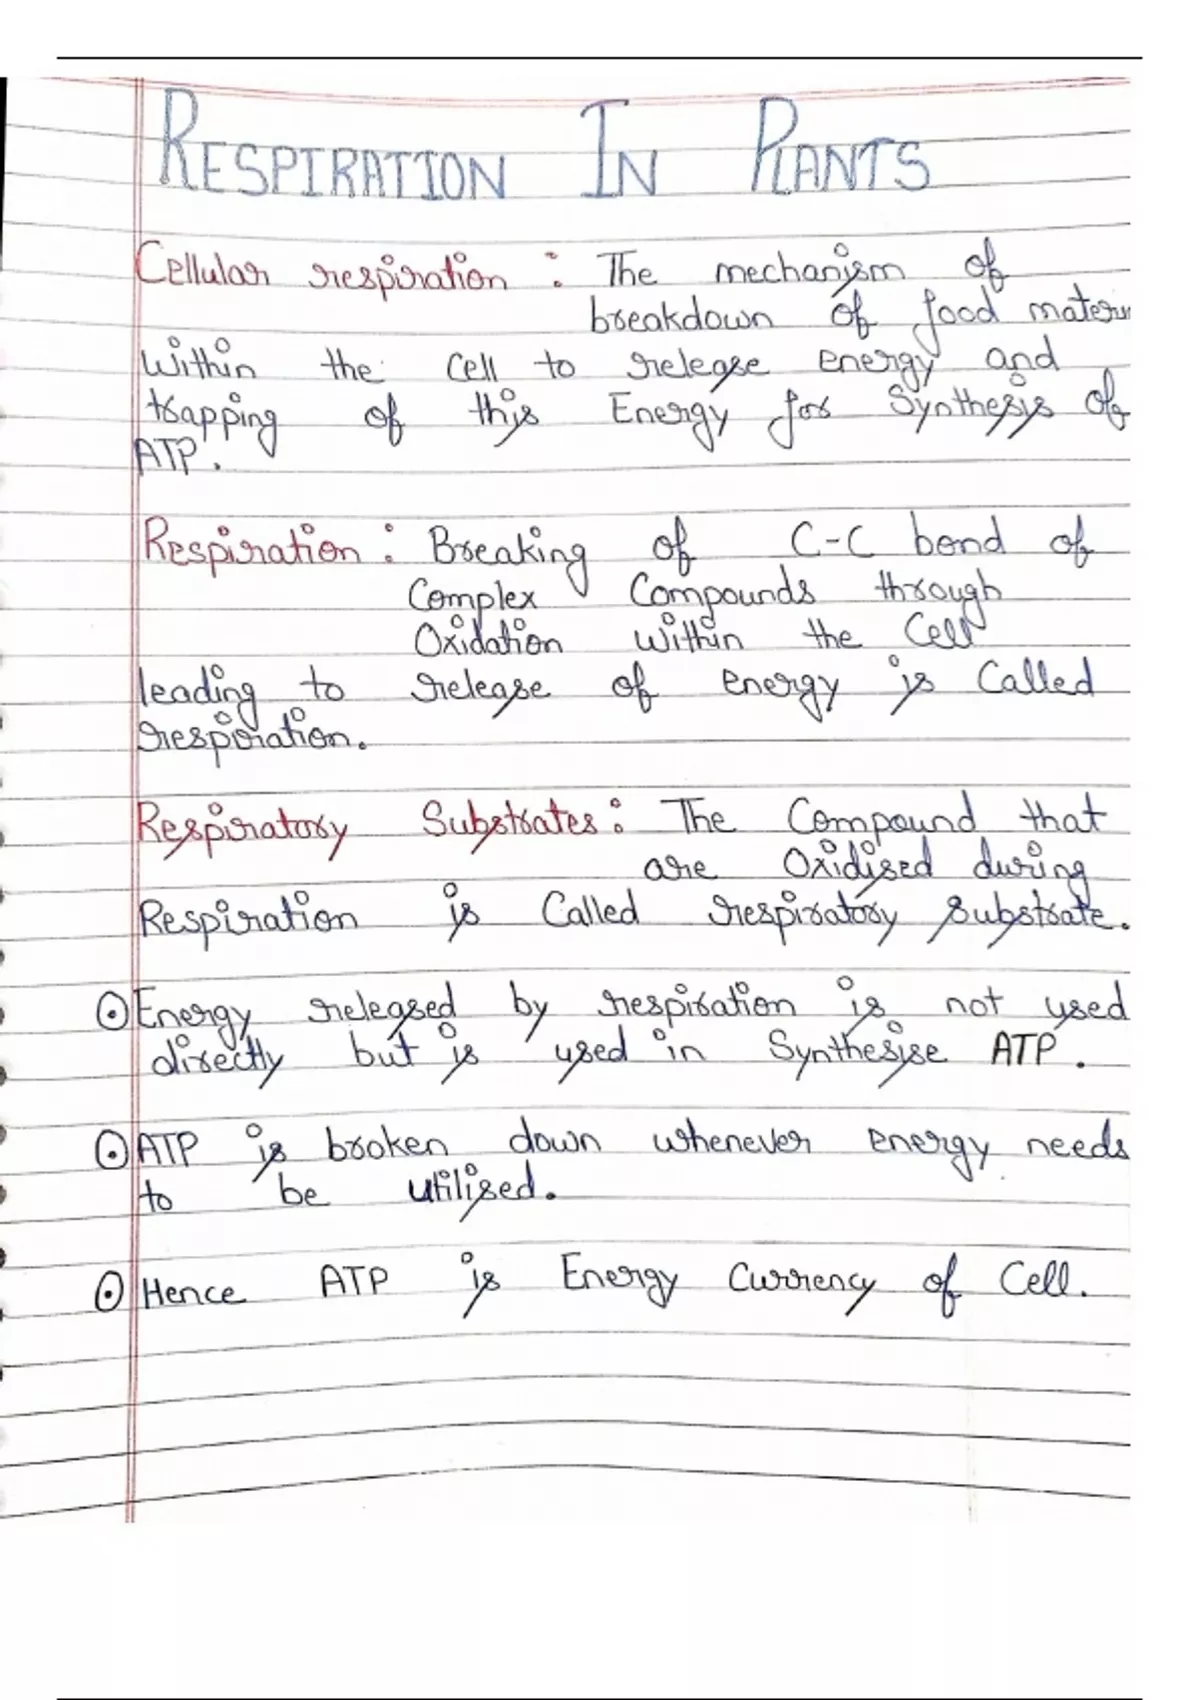 RESPIRATION IN PLANTS
Cellular respiration : The mechanism of
breakdown of food materi
within the cell to release energy and
trapping of this Energy for Synthesis of
ATP.
Respiration : Breaking of C-C bond of
Complex Compounds through
Oxidation within the Cell
leading to release of energy is Called
respiration.
Respiratory Substrates : The Compound that
are Oxidised during
Respiration is Called respiratory substrate.
⊙ Energy released by respiration is not used
directly but is used in Synthesise ATP.
⊙ ATP is broken down whenever energy needs
to be utilised.
⊙ Hence ATP is Energy Currency of Cell.